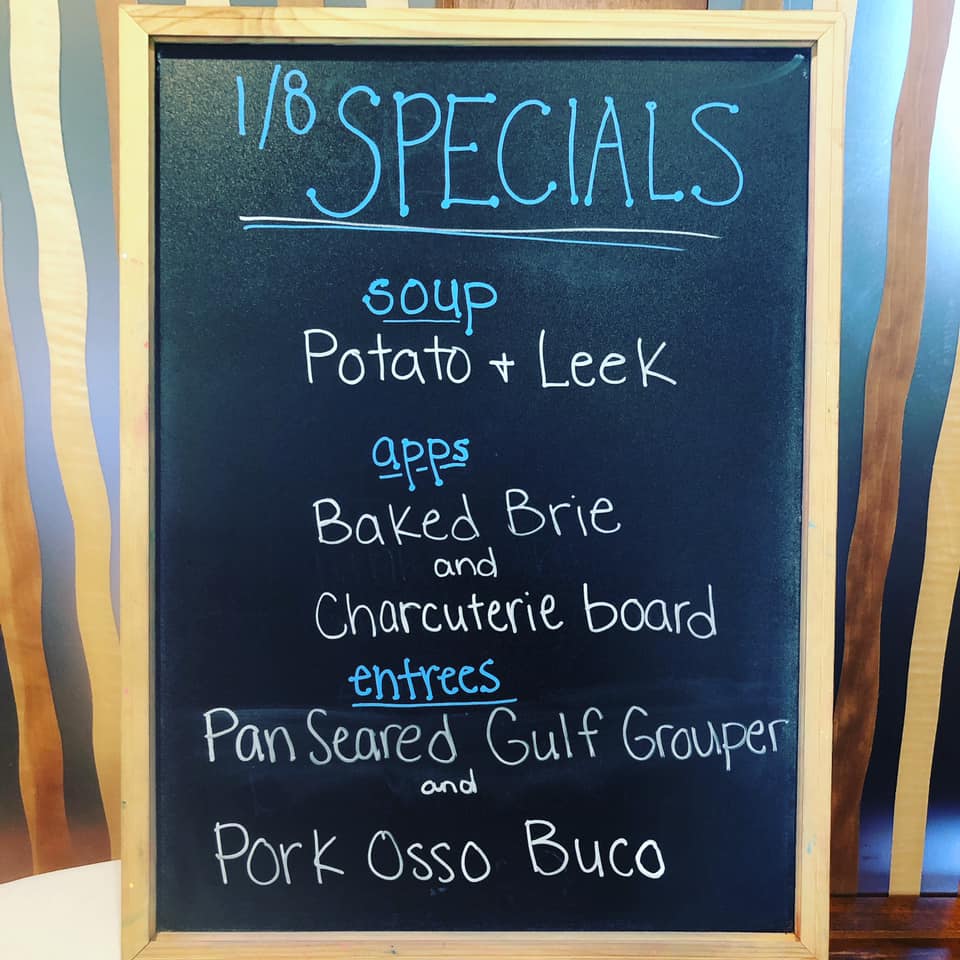 1/8 SPECIALS
soup
Potato + Leek
apps
Baked Brie
and
Charcuterie board
entrees
Pan Seared Gulf Grouper
and
Pork Osso Buco